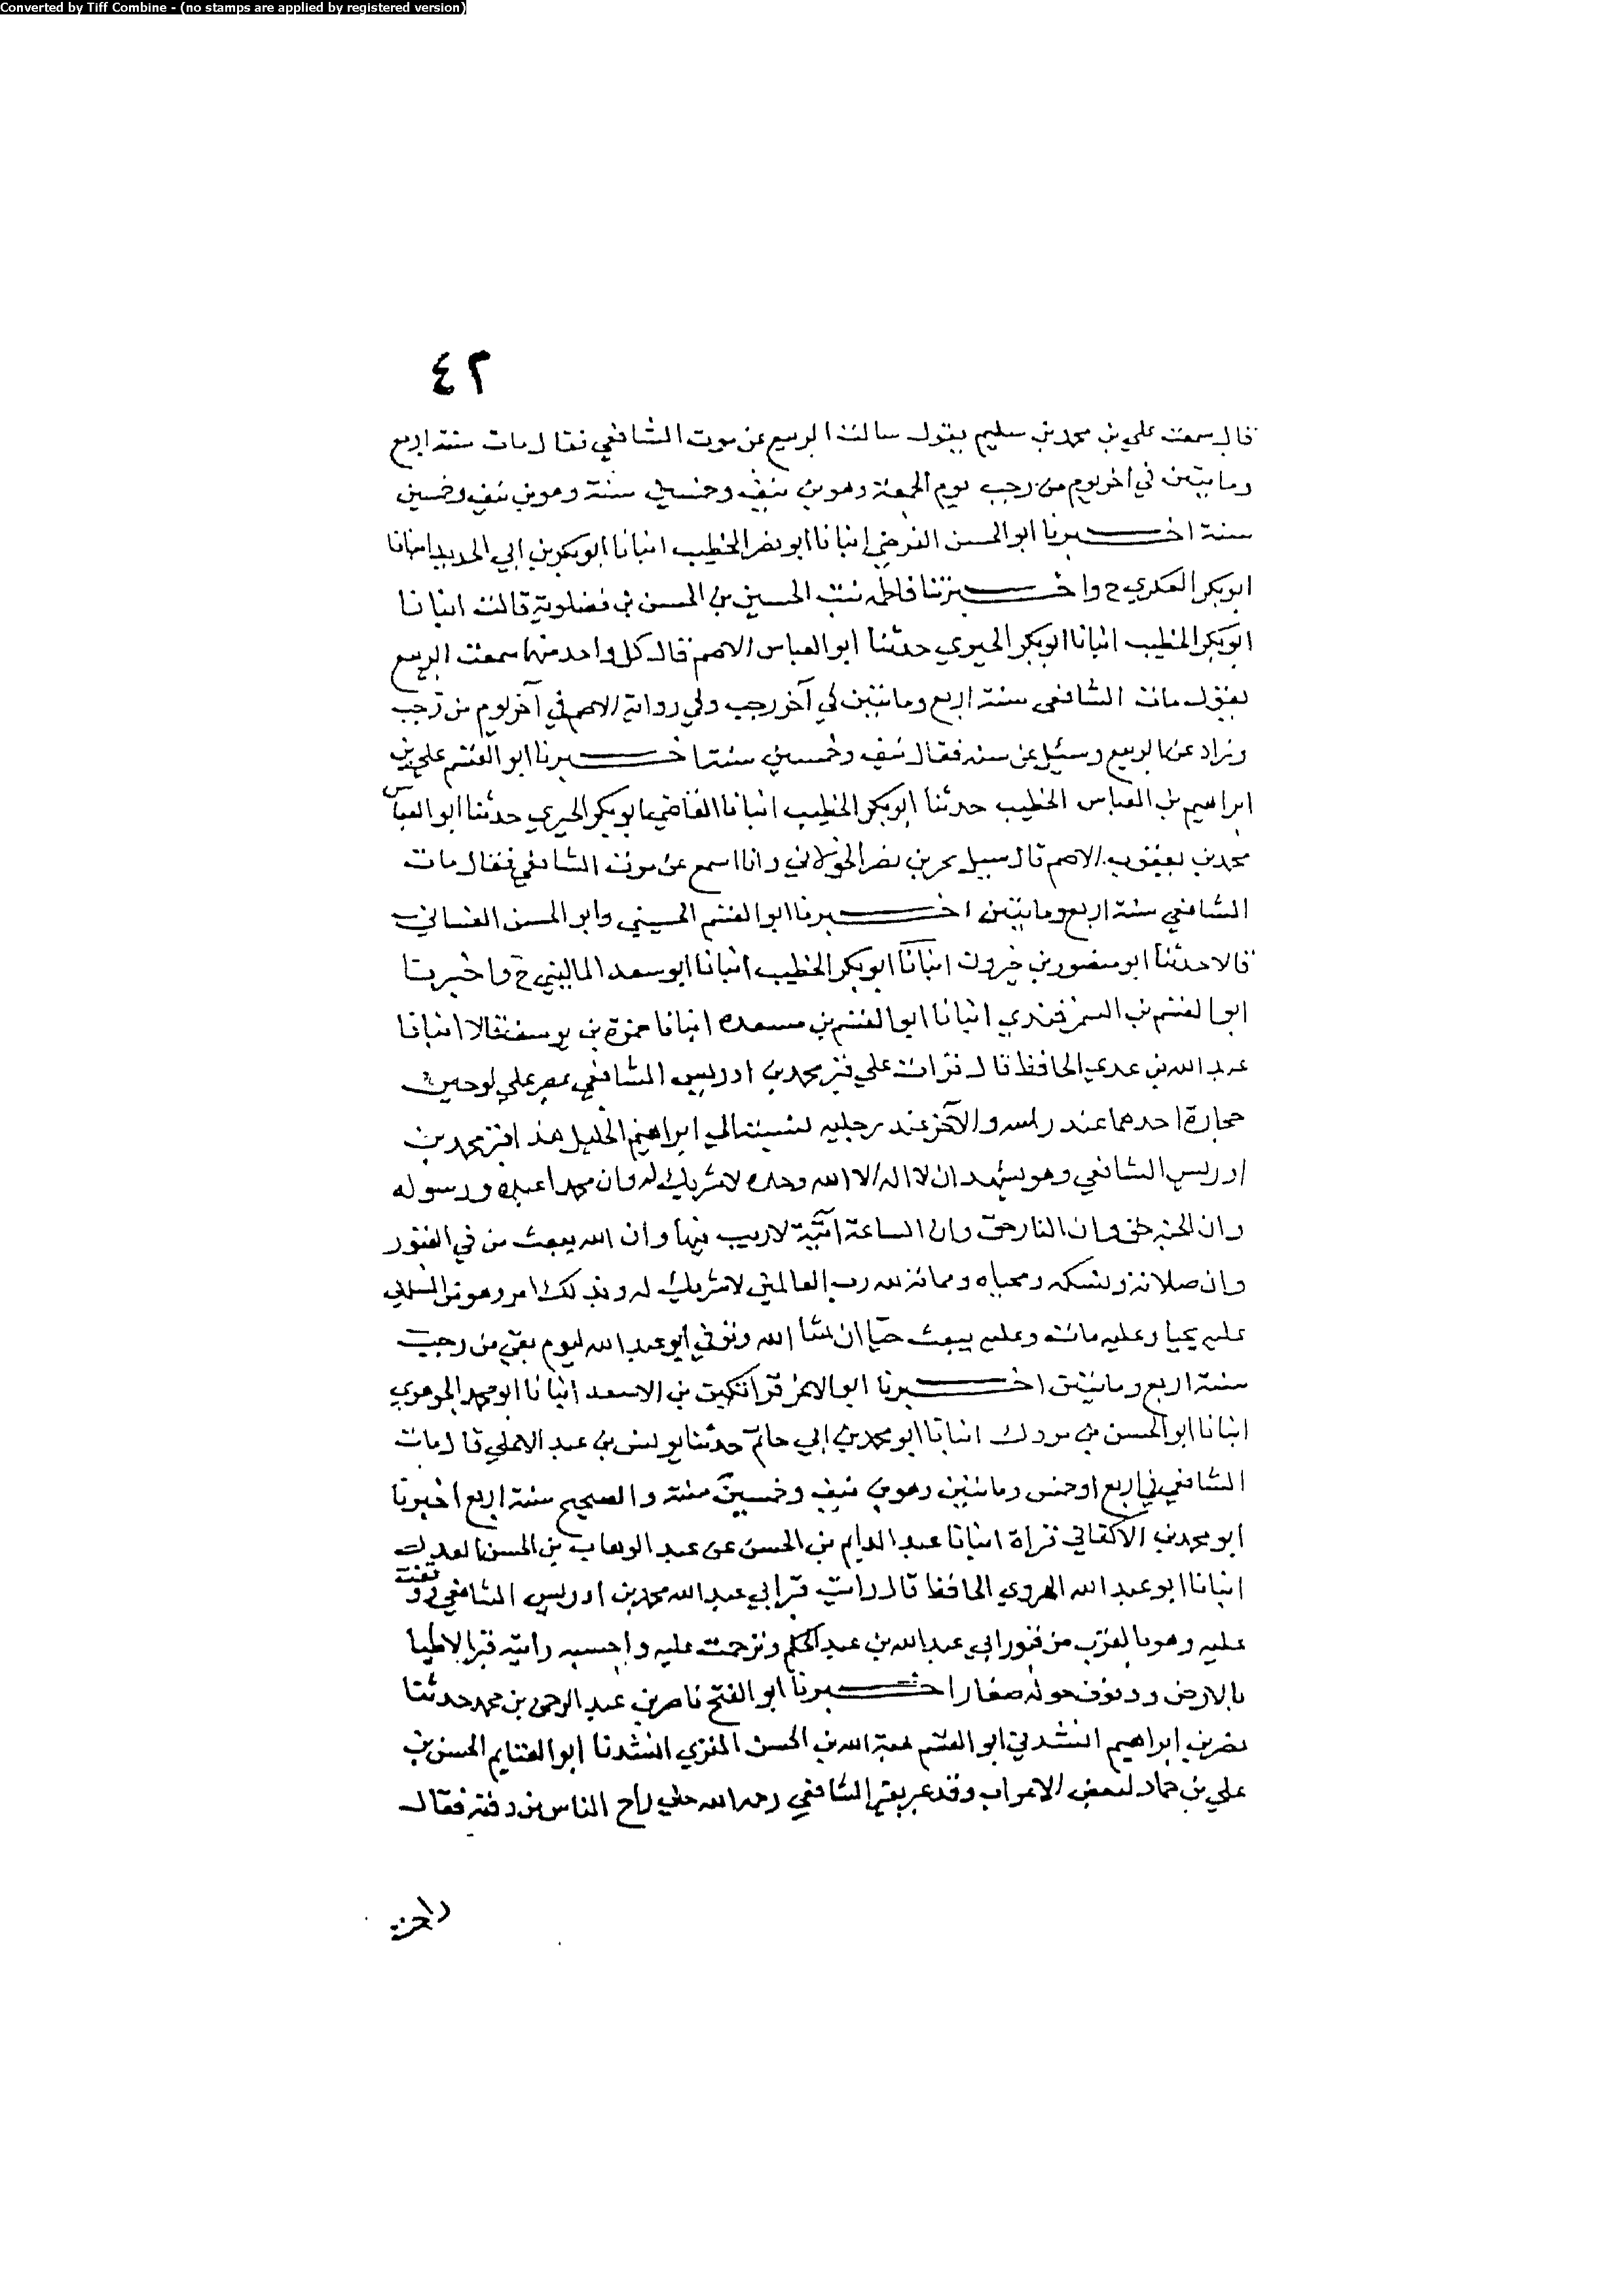 Converted by Tiff Combine - (no stamps are applied by registered version)
٤٢
قال سمعت علي بن محمد بن سليم يقول سالت الربيع عن موت الشافعي فقال مات سنة اربع
ومايتين في اخر يوم من رجب يوم الجمعة وهو بن نيف وخمسين سنة وهو بن نيف وخمسين
سنة اخـــبرنا ابو الحسن الفرضي انبانا ابو نصر الخطيب انبانا ابو بكر بن ابي الحديد انبانا
ابو بكر العكري ح واخـــبرتنا فاطمة بنت الحسين بن الحسن بن فضلوية قالت انبانا
ابو بكر الخطيب انبانا ابو بكر الحيري حدثنا ابو العباس الاصم قال كل واحد منهما سمعت الربيع
يقول مات الشافعي سنة اربع ومايتين في آخر رجب وفي رواية الاصم في آخر يوم من رجب
وزاد عن الربيع وسئل عن سنه فقال نيف وخمسين سنة اخـــبرنا ابو القسم علي بن
ابراهيم بن العباس الخطيب حدثنا ابو بكر الخطيب انبانا القاضي ابو بكر الحيري حدثنا ابو العباس
محمد بن يعقوب الاصم قال سيل بحر بن نصر الخولاني وانا اسمع عن موت الشافعي فقال مات
الشافعي سنة اربع ومايتين اخـــبرنا ابو القسم الحسيني وابو الحسن الغساني
قالا حدثنا ابو منصور بن خيرون انبانا ابو بكر الخطيب انبانا ابو سعد الماليني ح واخبرنا
ابو القسم بن السمرقندي انبانا ابو القسم بن مسعدة انبانا حمزة بن يوسف قالا انبانا
عبد الله بن عدي الحافظ قال قرات علي قبر محمد بن ادريس الشافعي بمصر علي لوحين
حجارة احدهما عند راسه والآخر عند رجليه نسبته الي ابراهيم الخليل هذا قبر محمد بن
ادريس الشافعي وهو يشهد ان لا اله الا الله وحده لا شريك له وان محمدا عبده ورسوله
وان الجنة حق وان النار حق وان الساعة آتية لا ريب فيها وان الله يبعث من في القبور
وان صلاته ونسكه ومحياه ومماته لله رب العالمين لا شريك له وبذلك امر وهو من المسلمين
عليه يحيا وعليه مات وعليه يبعث حيا ان شا الله وتوفي ابو عبد الله ليوم بقي من رجب
سنة اربع ومايتين اخـــبرنا ابو الاعز قراتكين بن الاسعد انبانا ابو محمد الجوهري
انبانا ابو الحسن بن مردك انبانا ابو محمد بن ابي حاتم حدثنا يونس بن عبد الاعلي قال مات
الشافعي في اربع او خمس ومايتين وهو بن نيف وخمسين سنة والصحيح سنة اربع اخبرنا
ابو محمد بن الاكفاني قراة انبانا عبد الدايم بن الحسن عن عبد الوهاب بن الحسن العدل
انبانا ابو عبد الله الهروي الحافظ قال رايت قبر ابي عبد الله محمد بن ادريس الشافعي ووقفت
عليه وهو بالقرب من قبور ابي عبد الله بن عبد الحكم وترحمت عليه واحسبه رايته قبرا لاطيا
بالارض ودفوف حوله صغارا اخـــبرنا ابو الفتح ناصر بن عبد الرحمن بن محمد حدثنا
نصر بن ابراهيم انشدني ابو القسم هبة الله بن الحسن المنزي انشدنا ابو الغنايم الحسن بن
علي بن حماد لبعض الاعراب وقد عبر بقبر الشافعي رحمه الله حلي راح الناس من دفنه فقال